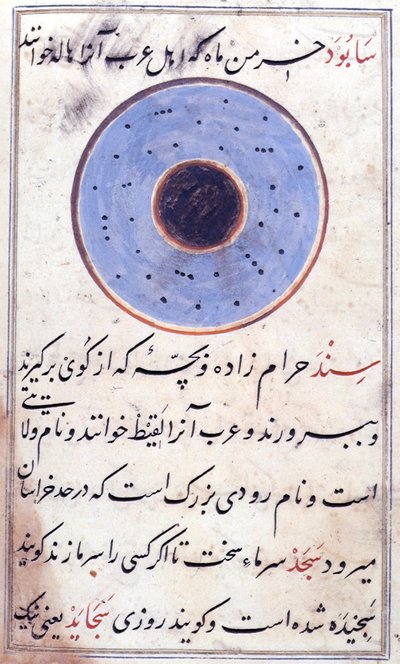 سابُود خرمن ماه که اهل عرب آنرا هاله خوانند
سِند حرام زاده و بچّهٔ که از کُوئ برکیرند
و بپرورند و عرب آنرا لَقیط خوانند و نام ولایتی
است و نام رودی بزرک است که در حد خراسان
میرود سَجَد سرماء سخت تا اکر کسی را سرما زند کویند
سَجیده شده است و کویند روزی سَجاید یعنی نیک